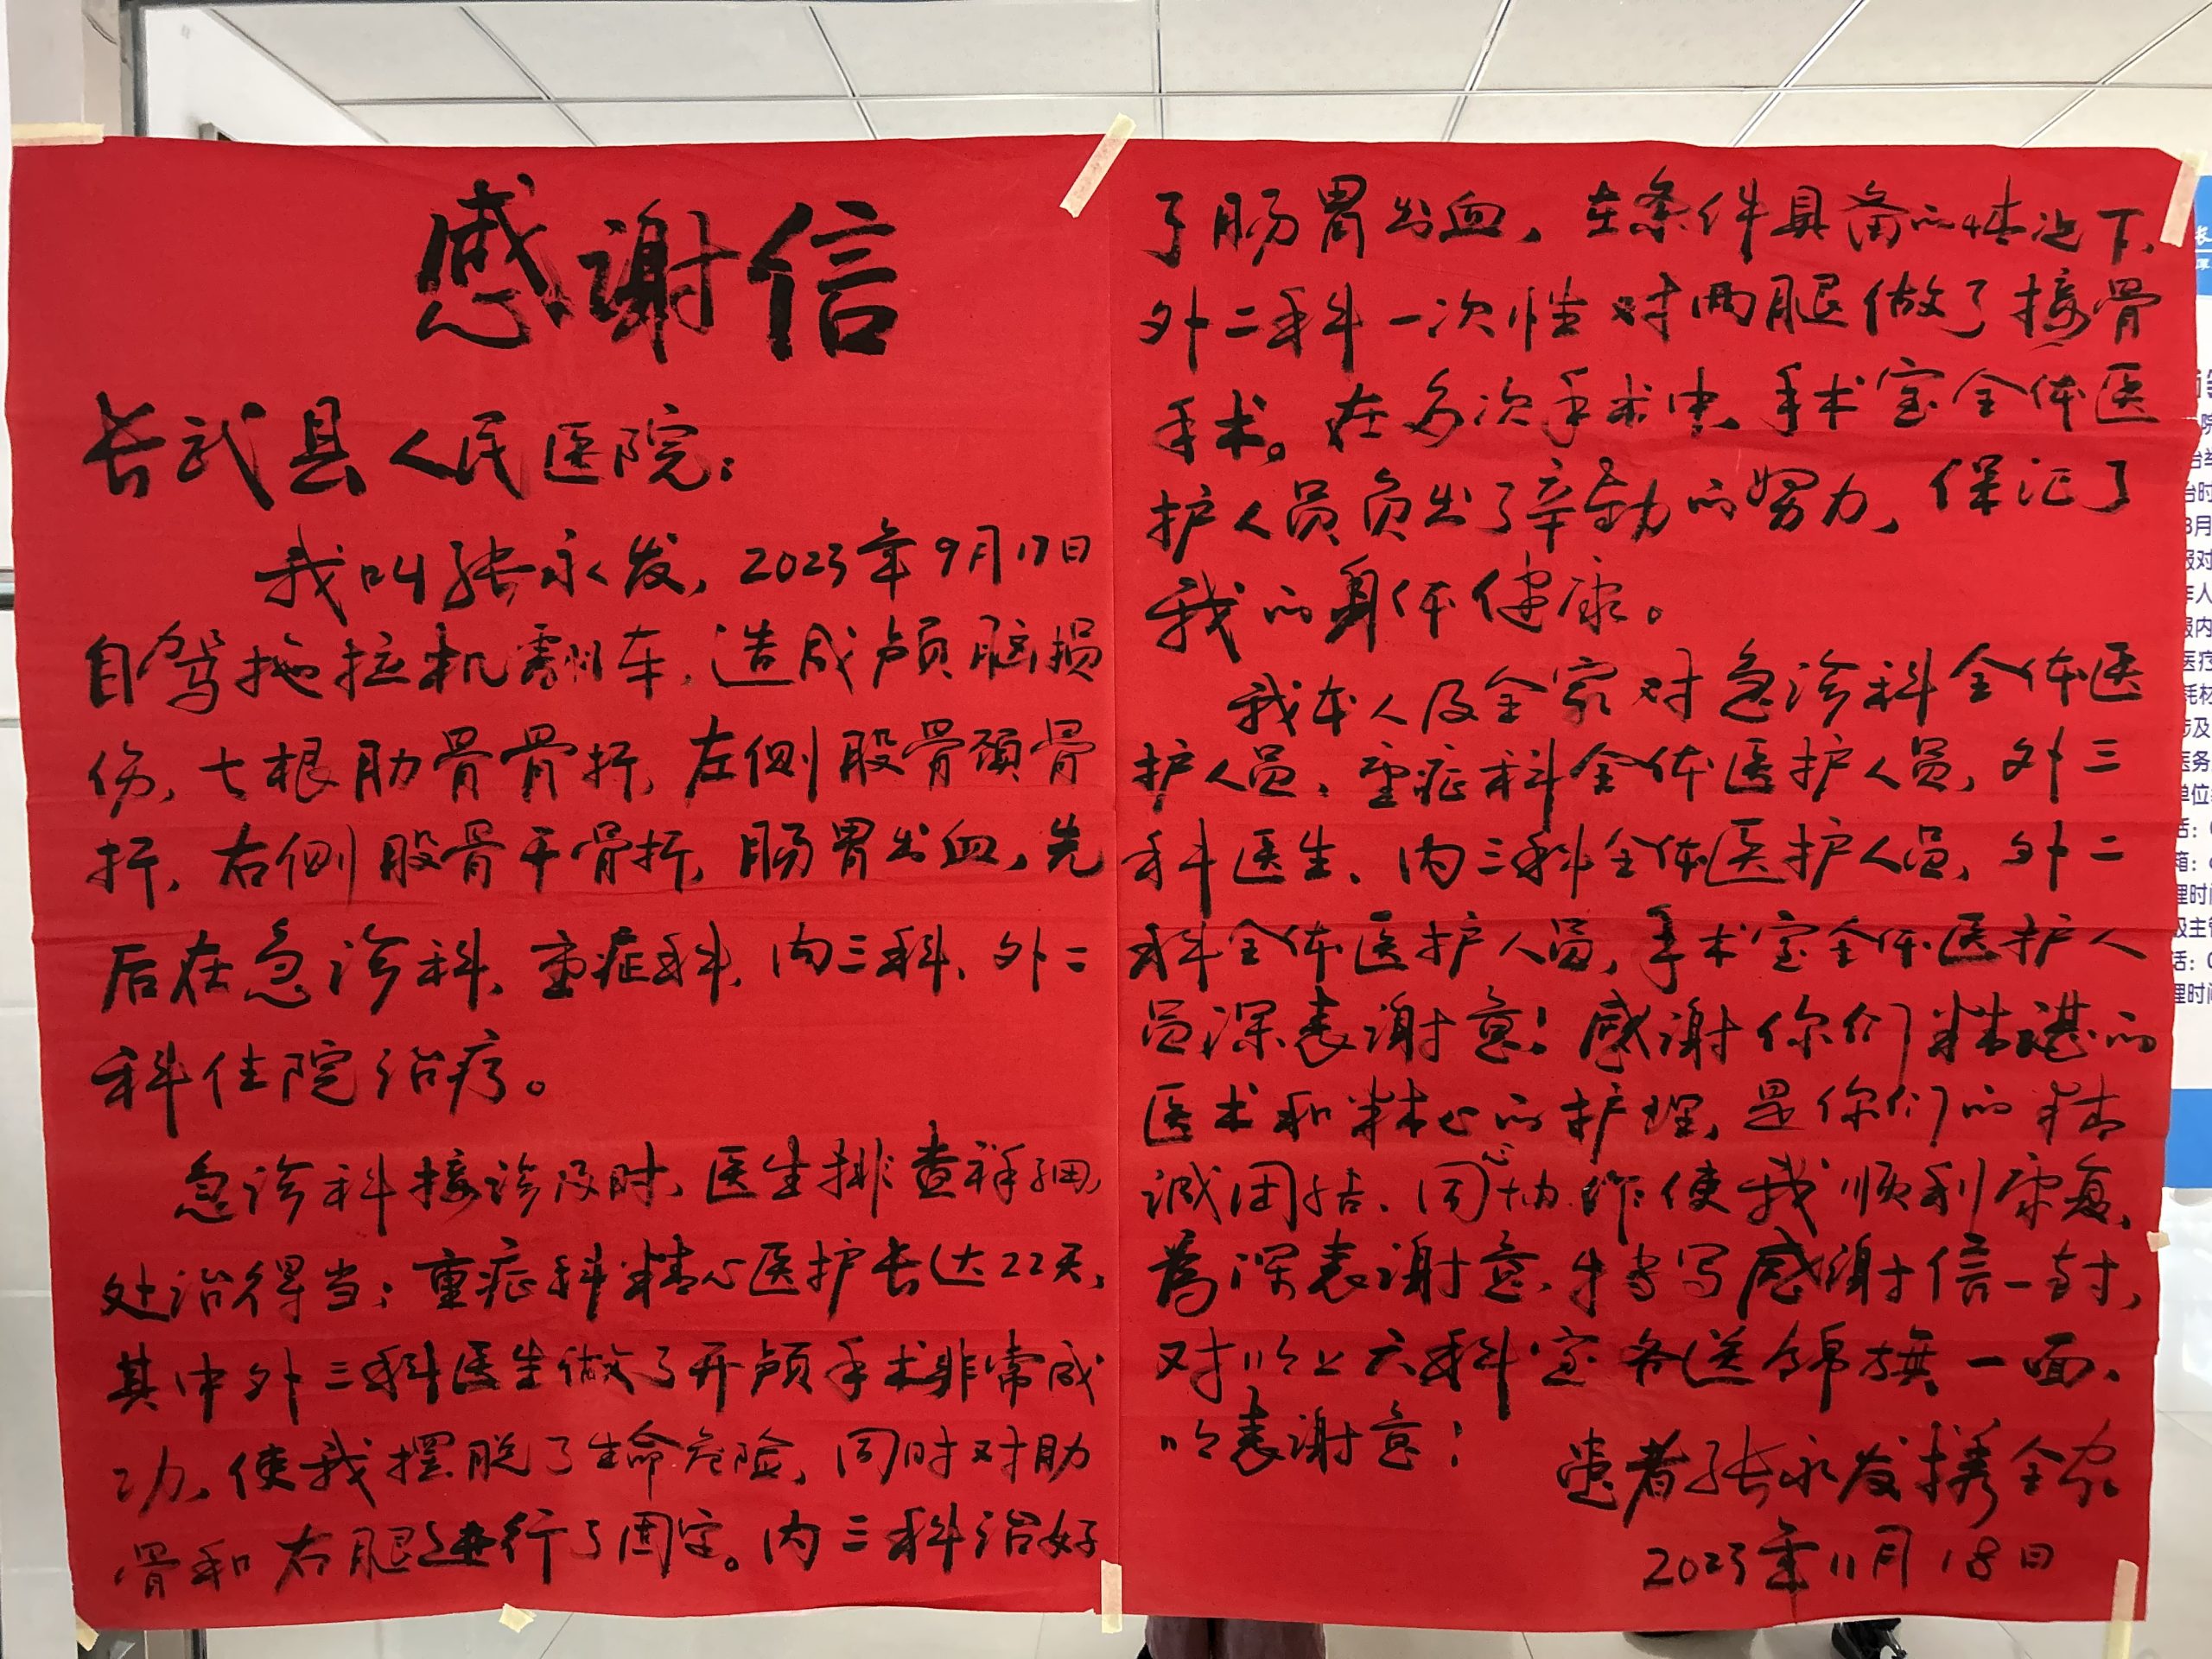 感谢信
长武县人民医院：
我叫张永发，2023年9月17日
自驾拖拉机翻车，造成颅脑损
伤，七根肋骨骨折，左侧股骨颈骨
折，右侧股骨干骨折，肠胃出血，先
后在急诊科、重症科、内三科、外二
科住院治疗。
急诊科接诊及时、医生排查祥细，
处治得当；重症科精心医护长达22天，
其中外三科医生做了开颅手术非常成
功，使我摆脱了生命危险，同时对肋
骨和右腿进行了固定。内三科治好
了肠胃出血，在条件具备的情况下，
外二科一次性对两腿做了接骨
手术。在多次手术中，手术室全体医
护人员负出了辛勤的努力，保证了
我的身体健康。
我本人及全家对急诊科全体医
护人员、重症科全体医护人员，外三
科医生、内三科全体医护人员，外二
科全体医护人员，手术室全体医护人
员深表谢意！感谢你们精湛的
医术和精心的护理，是你们的精
诚团结、同心协作使我顺利康复，
为深表谢意，特写感谢信一封，
对以上六科室各送锦旗一面，
以表谢意！
患者张永发携全家
2023年11月18日